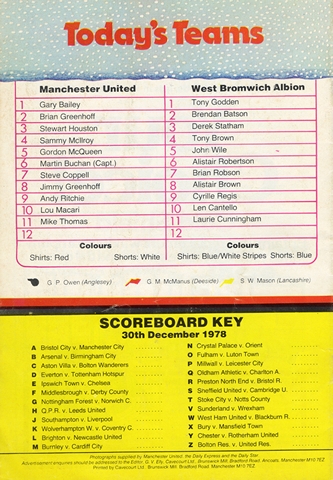 Today's Teams
Manchester United
1 Gary Bailey
2 Brian Greenhoff
3 Stewart Houston
4 Sammy McIlroy
5 Gordon McQueen
6 Martin Buchan (Capt.)
7 Steve Coppell
8 Jimmy Greenhoff
9 Andy Ritchie
10 Lou Macari
11 Mike Thomas
12
Colours
Shirts: Red Shorts: White
West Bromwich Albion
1 Tony Godden
2 Brendan Batson
3 Derek Statham
4 Tony Brown
5 John Wile
6 Alistair Robertson
7 Brian Robson
8 Alistair Brown
9 Cyrille Regis
10 Len Cantello
11 Laurie Cunningham
12
Colours
Shirts: Blue/White Stripes Shorts: Blue
G. P. Owen (Anglesey) G. M. McManus (Deeside) S. W. Mason (Lancashire)
SCOREBOARD KEY
30th December 1978
A Bristol City v. Manchester City
B Arsenal v. Birmingham City
C Aston Villa v. Bolton Wanderers
D Everton v. Tottenham Hotspur
E Ipswich Town v. Chelsea
F Middlesbrough v. Derby County
G Nottingham Forest v. Norwich C.
H Q.P.R. v. Leeds United
J Southampton v. Liverpool
K Wolverhampton W. v. Coventry C.
L Brighton v. Newcastle United
M Burnley v. Cardiff City
N Crystal Palace v. Orient
O Fulham v. Luton Town
P Millwall v. Leicester City
Q Oldham Athletic v. Charlton A.
R Preston North End v. Bristol R.
S Sheffield United v. Cambridge U.
T Stoke City v. Notts County
V Sunderland v. Wrexham
W West Ham United v. Blackburn R.
X Bury v. Mansfield Town
Y Chester v. Rotherham United
Z Bolton Res. v. United Res.
Photographs supplied by Manchester United, the Daily Express and the Daily Star.
Advertisement enquiries should be addressed to the Editor, G. V. Elly, Cavecourt Ltd., Brunswick Mill, Bradford Road, Ancoats, Manchester M10 7EZ
Printed by Cavecourt Ltd., Brunswick Mill, Bradford Road, Manchester M10 7EZ